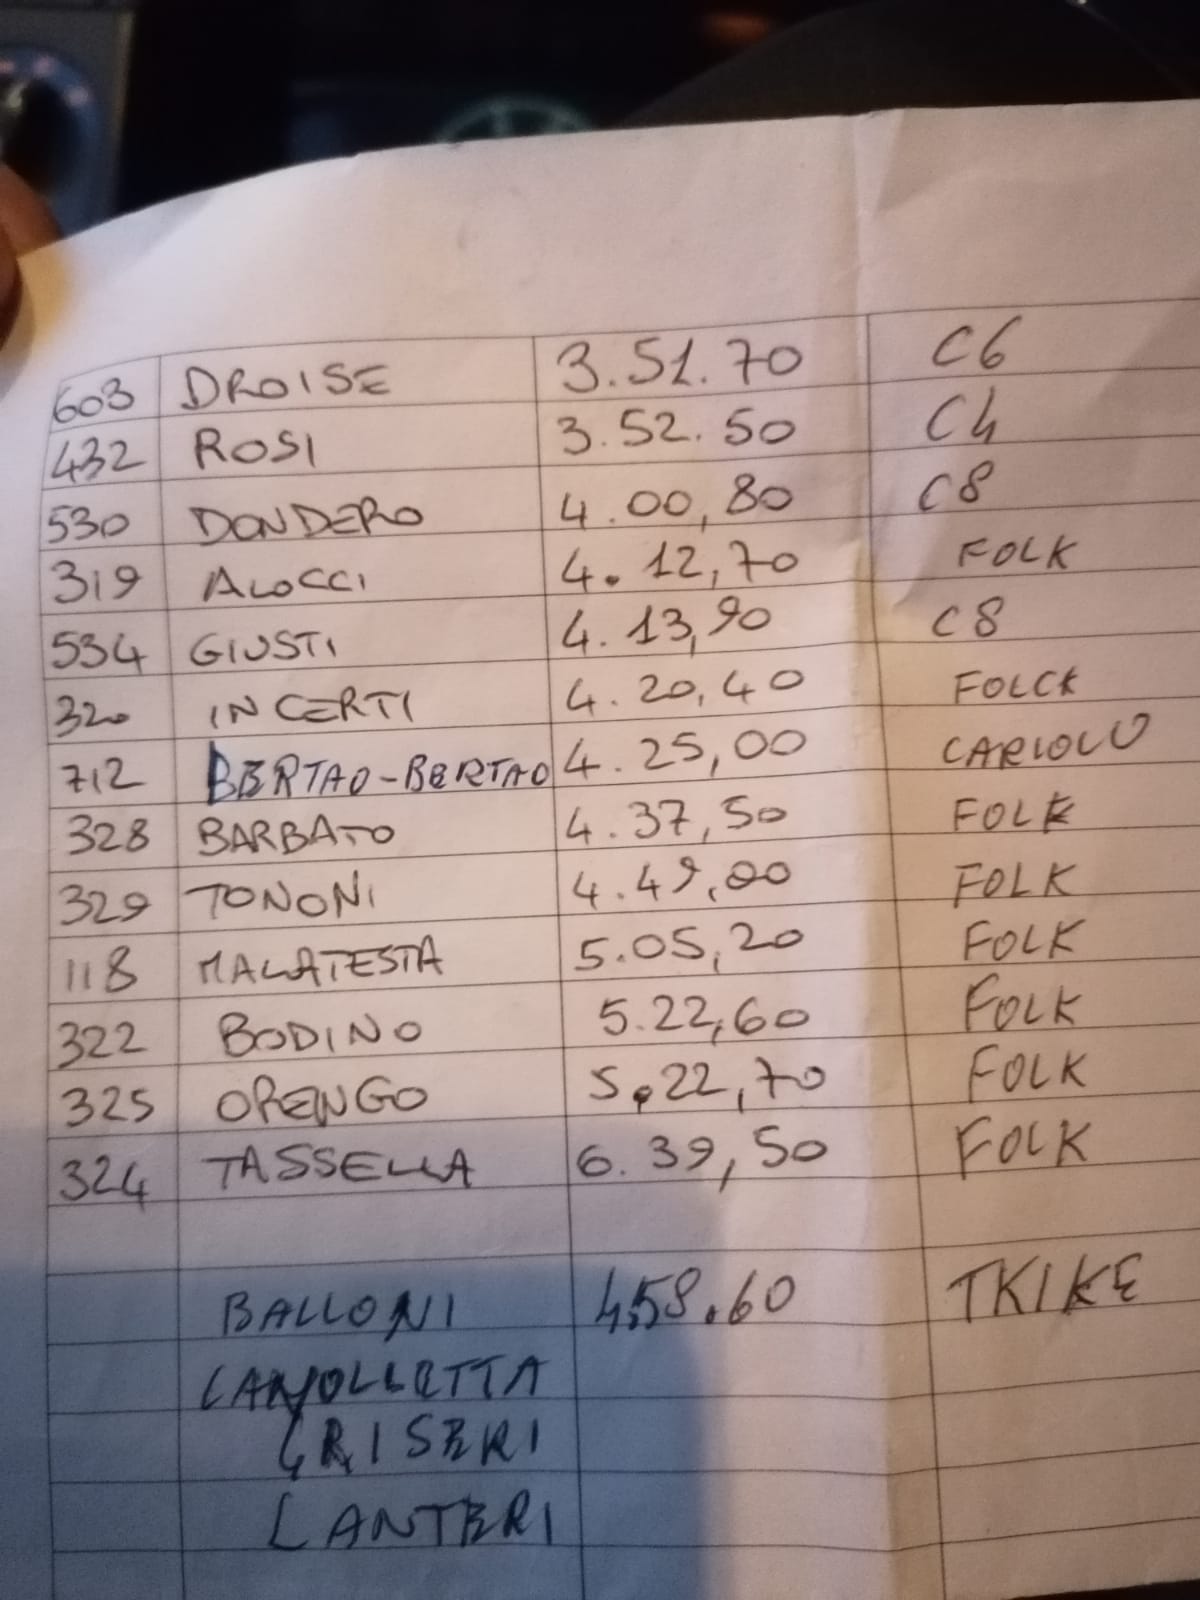 603 DROISE 3.51.70 C6
432 ROSI 3.52.50 C4
530 DONDERO 4.00,80 C8
319 ALOCCI 4.12,70 FOLK
534 GIUSTI 4.13,90 C8
320 INCERTI 4.20,40 FOLCK
712 BERTAO-BERTAO 4.25,00 CARIOLO
328 BARBATO 4.37,50 FOLK
329 TONONI 4.49,00 FOLK
118 MALATESTA 5.05,20 FOLK
322 BODINO 5.22,60 FOLK
325 ORENGO 5.22,70 FOLK
324 TASSELLA 6.39,50 FOLK
BALLONI 4.58.60 TKIKE
GRISERI
LANTERI